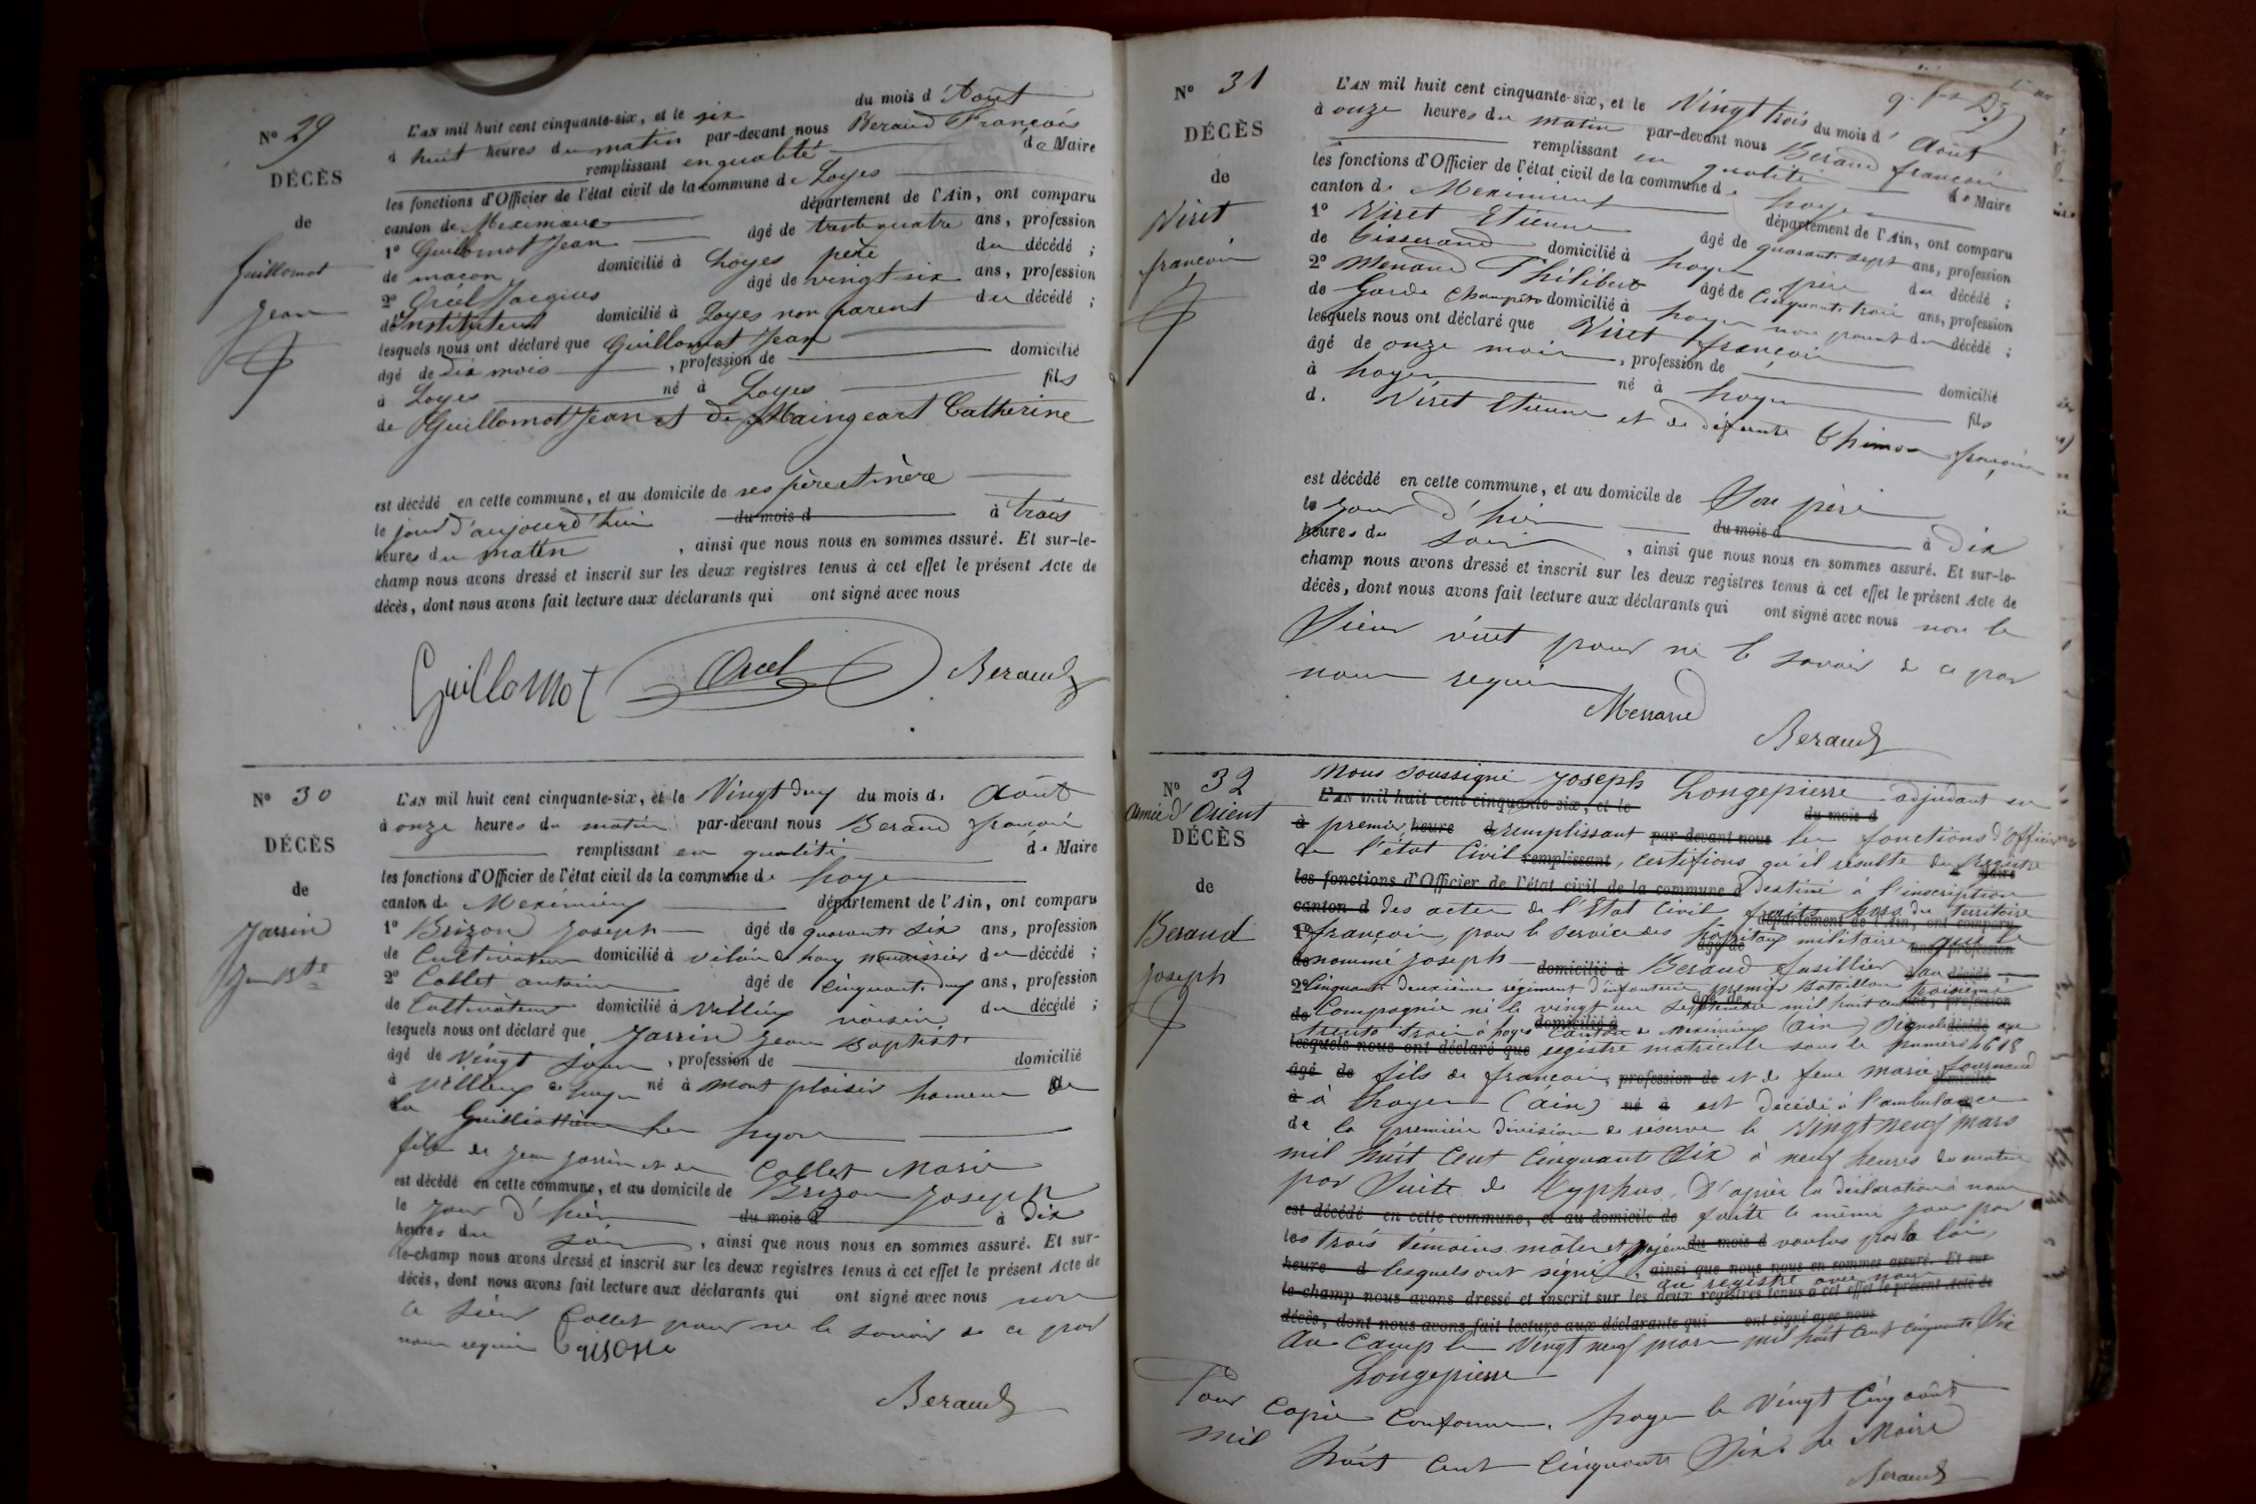 N° 29
DÉCÈS
de
Guillomot
Jean
L'AN mil huit cent cinquante-six, et le six du mois d'Août
à huit heures du matin par-devant nous Beraud François
remplissant en qualité de Maire
les fonctions d'Officier de l'état civil de la commune de Loyes
canton de Meximieux département de l'Ain, ont comparu
1° Guillomot Jean âgé de trente quatre ans, profession
de maçon domicilié à Loyes père du décédé ;
2° Orcel Jacques âgé de vingt six ans, profession
d'Instituteur domicilié à Loyes non parent du décédé ;
lesquels nous ont déclaré que Guillomot Jean
âgé de dix mois , profession de domicilié
à Loyes né à Loyes fils
de Guillomot Jean et de Maingeart Catherine
est décédé en cette commune, et au domicile de ses père et mère
le jour d'aujourd'hui du mois d à trois
heures du matin , ainsi que nous nous en sommes assuré. Et sur-le-
champ nous avons dressé et inscrit sur les deux registres tenus à cet effet le présent Acte de
décès, dont nous avons fait lecture aux déclarants qui ont signé avec nous
Guillomot Orcel Beraud
N° 30
DÉCÈS
de
Jarrin
Jean Bte
L'AN mil huit cent cinquante-six, et le Vingt deux du mois d. Août
à onze heures du matin par-devant nous Beraud françois
remplissant en qualité de Maire
les fonctions d'Officier de l'état civil de la commune de Loyes
canton de Meximieux département de l'Ain, ont comparu
1° Brizon Joseph âgé de quarante six ans, profession
de Cultivateur domicilié à nourissier du décédé ;
2° Collet antoine âgé de cinquante deux ans, profession
de Cultivateur domicilié à voisin du décédé ;
lesquels nous ont déclaré que Jarrin Jean Baptiste
âgé de Vingt jours , profession de domicilié
à de Loyes né à mont plaisir hameau de
la Guillotière Lyon
fils de Jean Jarrin et de Collet Marie
est décédé en cette commune, et au domicile de Brizon Joseph
le jour d'hier du mois d à dix
heures du soir , ainsi que nous nous en sommes assuré. Et sur-
le-champ nous avons dressé et inscrit sur les deux registres tenus à cet effet le présent Acte de
décès, dont nous avons fait lecture aux déclarants qui ont signé avec nous non
le sieur Collet pour ne le savoir de ce par
nous requis Brison
Beraud
N° 31
DÉCÈS
de
Viret
françois
L'AN mil huit cent cinquante-six, et le Vingt trois du mois d' Août
à onze heures du matin par-devant nous Beraud françois
remplissant en qualité de Maire
les fonctions d'Officier de l'état civil de la commune de Loyes
canton de Meximieux département de l'Ain, ont comparu
1° Viret Etienne âgé de quarante sept ans, profession
de Tisserand domicilié à Loyes père du décédé ;
2° Menand Philibert âgé de Cinquante trois ans, profession
de Garde Champêtre domicilié à Loyes non parent du décédé ;
lesquels nous ont déclaré que Viret françois
âgé de onze mois , profession de domicilié
à Loyes né à Loyes fils
d. Viret Etienne et de défunte françoise
est décédé en cette commune, et au domicile de Son père
le jour d'hier du mois d à dix
heures du soir , ainsi que nous nous en sommes assuré. Et sur-le-
champ nous avons dressé et inscrit sur les deux registres tenus à cet effet le présent Acte de
décès, dont nous avons fait lecture aux déclarants qui ont signé avec nous non le
Sieur viret pour ne le savoir de ce par
nous requis
Menand
Beraud
N° 32
armée d'Orient
DÉCÈS
de
Beraud
Joseph
Nous soussigné Joseph Longepierre adjudant en
L'AN mil huit cent cinquante-six, et le du mois d
à premier heure d remplissant par-devant nous les fonctions d'Officier
de l'état Civil remplissant, certifions qu'il résulte du Registre
les fonctions d'Officier de l'état civil de la commune d destiné à l'inscription
canton d des actes de l'Etat Civil faits hors du territoire
département de l'Ain, ont comparu
1° françois, pour le service des hôpitaux militaires que le
âgé de ans, profession
de nommé Joseph domicilié à Beraud fusillier au décédé
2° Cinquante deuxième régiment d'infanterie premier Bataillon troisième
âgé de ans, profession
de Compagnie né le vingt un Septembre mil huit cent
domicilié à
trente trois à Loyes Canton de Meximieux (Ain) Signalé décédé au
lesquels nous ont déclaré que registre matricule sous le numéro 4618
âgé de fils de françois, profession de et de feue Marie domicilié
à à Loyes (Ain) né à est décédé à l'ambulance
de la première division de réserve le Vingt neuf Mars
mil huit Cent Cinquante Six à neuf heures du matin
par Suite de Typhus, D'après la déclaration à nous
est décédé en cette commune, et au domicile de faite le même jour par
les trois témoins mâles et majeurs du mois d voulus par la loi,
heure d lesquels ont signé , ainsi que nous nous en sommes assuré. Et sur
au registre avec nous
le-champ nous avons dressé et inscrit sur les deux registres tenus à cet effet le présent Acte de
décès, dont nous avons fait lecture aux déclarants qui ont signé avec nous
Au Camp le Vingt neuf mars mil huit cent cinquante Six
Longepierre
Pour Copie Conforme. Loyes le Vingt Cinq août
mil huit Cent Cinquante Six. Le Maire
Beraud